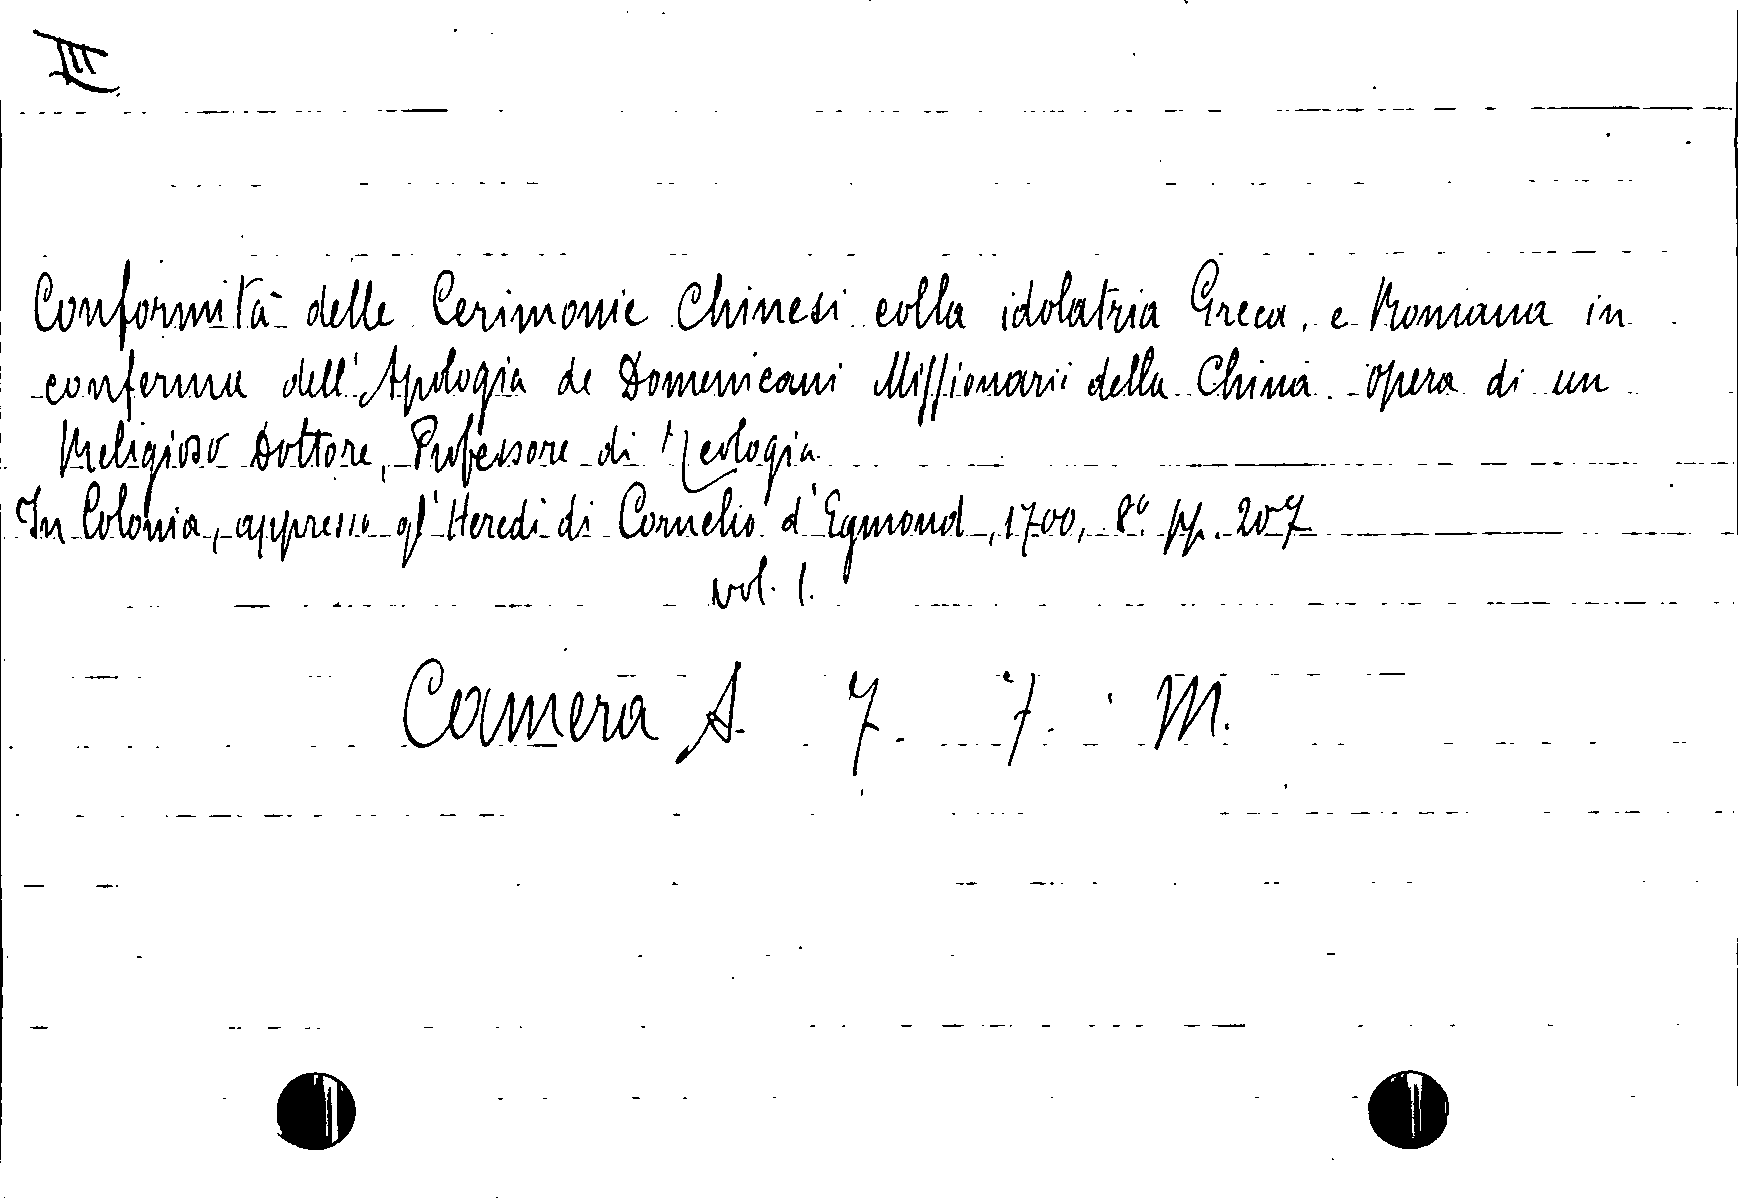 III
Conformità delle Cerimonie Chinesi colla idolatria Greca, e Romana in
conferma dell'Apologia de Domenicani Missionarii della China. Opera di un
Religioso Dottore, Professore di Teologia
In Colonia, appresso gl'Heredi di Cornelio d'Egmond, 1700, 8° pp. 207
vol. 1.
Camera A. 7. 7. M.